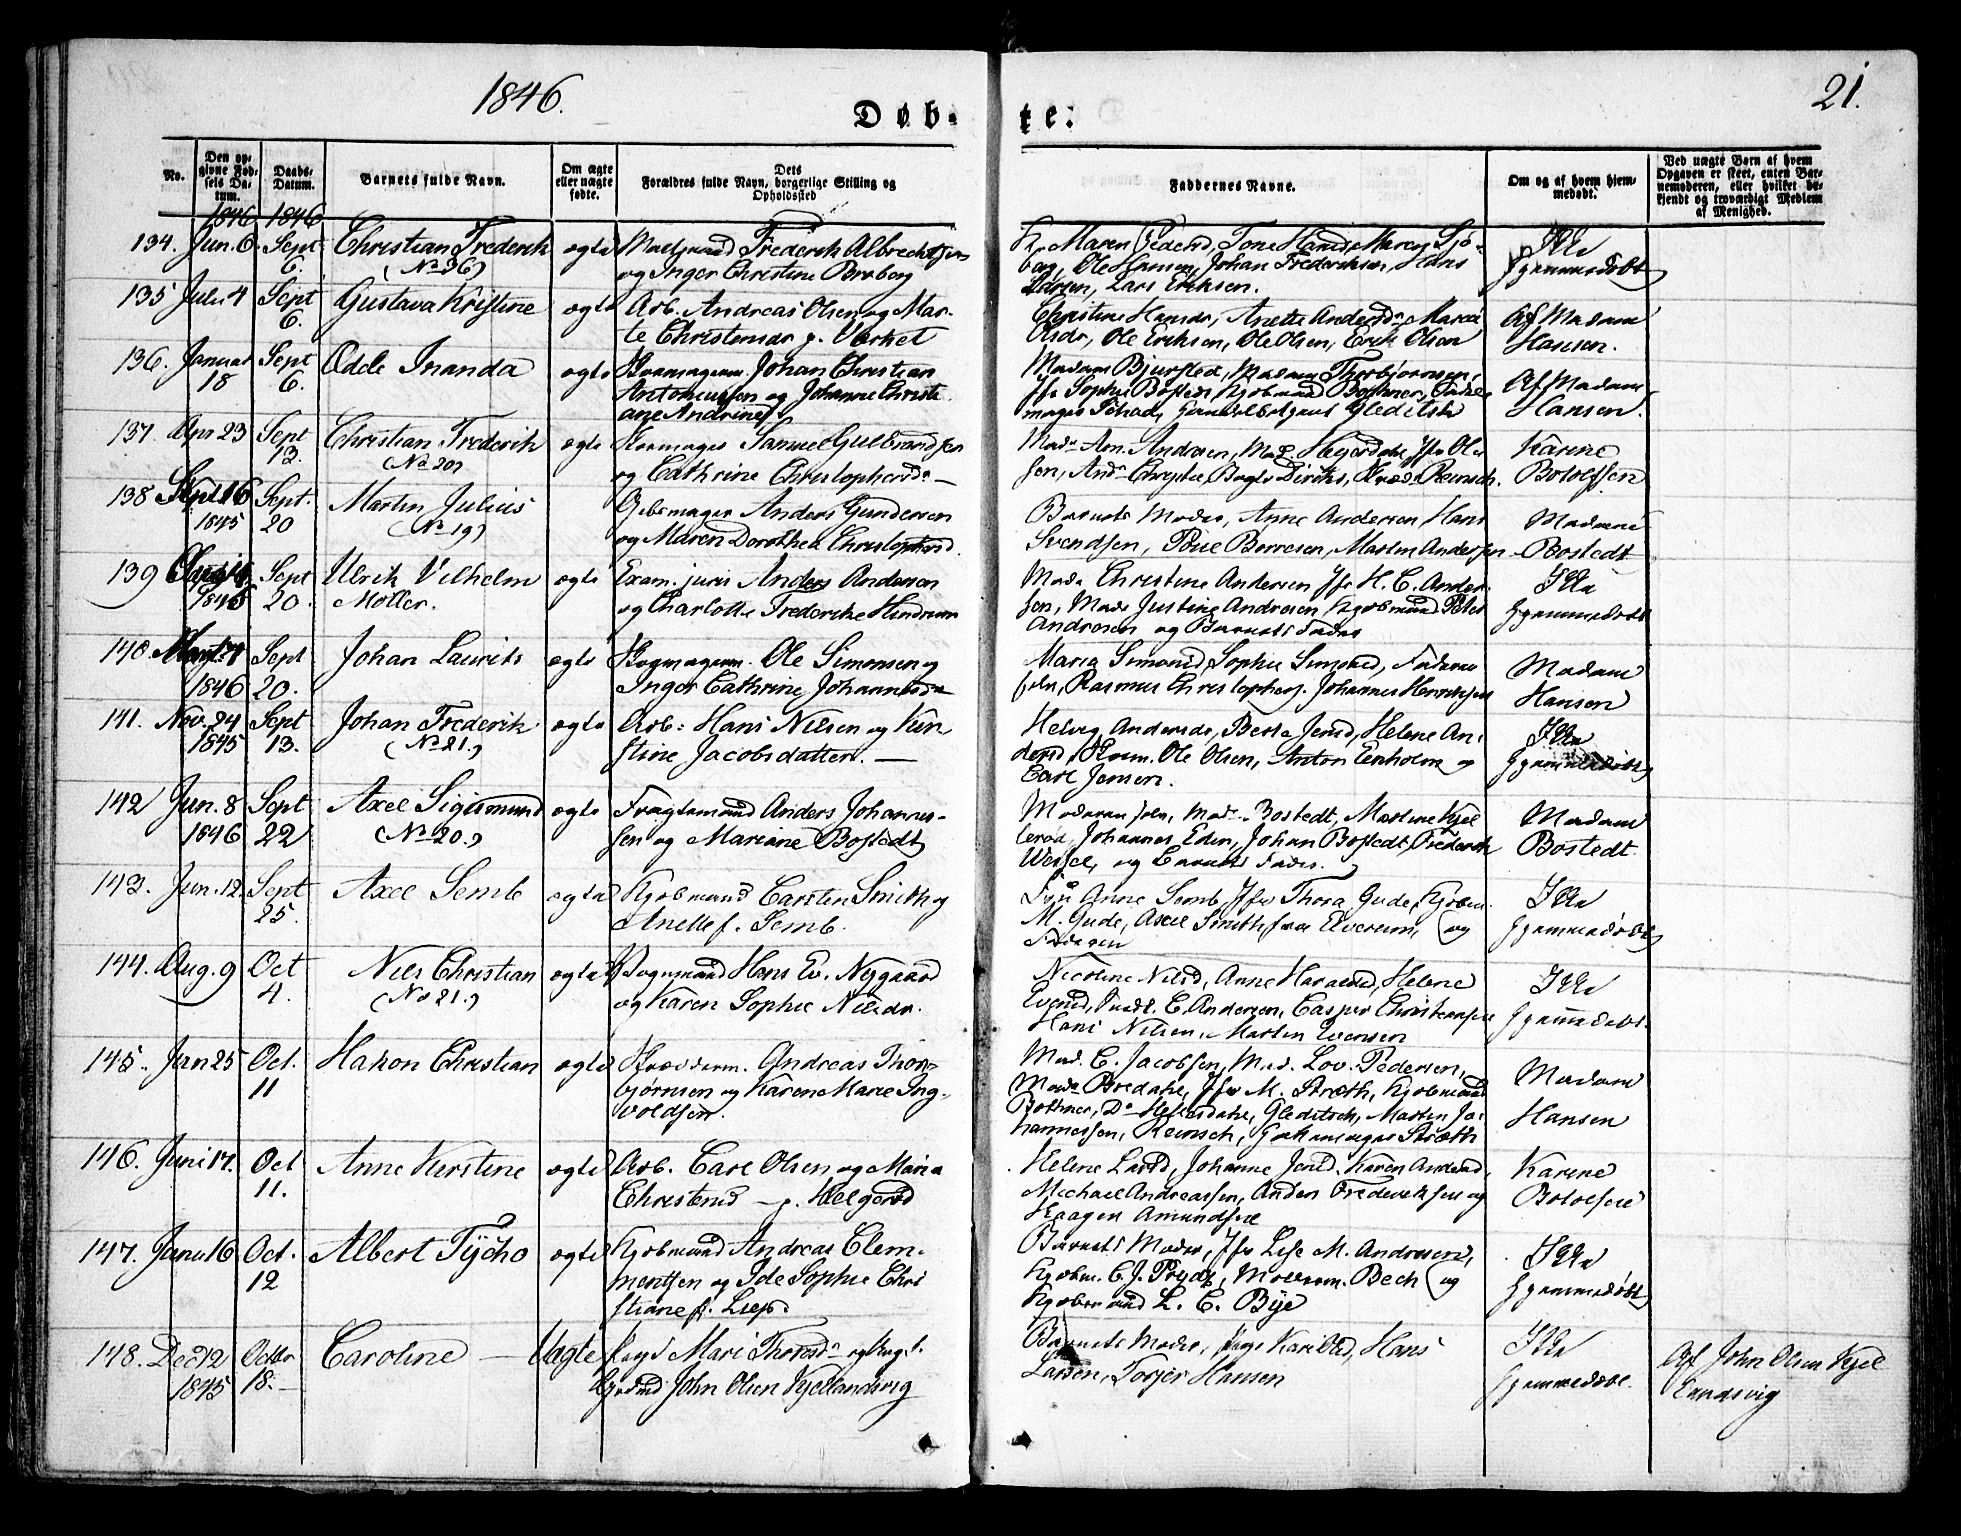 1846.
21.
Døb-
te:
No.
Den op-
givne Fød-
sels Da-
tum.
Daabs-
Datum.
Barnets fulde Navn.
Om ægte
eller uægte
fødte.
Dets
Forældres fulde Navn, borgerlige Stilling og
Opholdssted
Faddernes Navne.
Om og af hvem hjem-
medøbt.
Ved uægte Børn af hvem
Opgaven er skeet, enten Bar-
nemoderen, eller hvilket be-
kjendt og troværdigt Medlem
af Menighed.
1846 1846
134. Jun. 6 Sept Christian Frederik ægte Frederik Albrechtsen
6. (No 36) og Inger Christine Broberg
Maren Peders, Tone Hansd, Maren Sjø-
berg, Ole Hansen, Johan Frederiksen, Hans
Larsen, Lars Eriksen.
Ikke
hjemmedøbt
135 Juli 4 Sept Gustava Kristine ægte Arb. Andreas Olsen og Mar-
6. te Christensdr p. Værket
Christine Hansdr, Anette Andersdr, Maria
Olsdr, Ole Eriksen, Ole Olsen, Erik Olsen
Af Madam
Hansen.
136. Januar Sept Odde Inanda ægte Johan Christian
18 6. Antoniussen og Johanne Christi
ane Andrine
Madam Bjursted, Madam Thorbjørnsen,
Jfr Sophie Bosted, Kjøbmand Bothner,
mager Schad, Gleditsch
Af Madam
Hansen.
137. Apr 23 Sept Christian Frederik ægte Samuel Gulbrandsen
13. (No 20) og Cathrine Christophersdr
Mad. Am. Andersen, Mad. Heyerdahl, Jfr Ol-
sen, And. Chrystie, Dirchs, Reinsch.
Karine
Botolfsen
138 Sept 16 Sept. Martin Julius Anders Gundersen
1845 20 (No 19) og Maren Dorothea Christophersd.
Barnets Moder, Anne Andersen, Hans
Svendsen, Borresen, Martin Andersen
Madame
Bostedt
139 Sept Ulrik Vilhelm ægte Exam. juris Anders Andersen
1845 20. Møller. og Charlotte Frederikke
Mad. Christine Andersen, Jfr H. C. Ander-
sen, Mad. Justine Andresen, Kjøbmand Peter
Andresen og Barnets Fader
Ikke
hjemmedøbt
140 Sept Johan Laurits ægte Ole Simonsen og
1846 20. Inger Cathrine Johannesdr
Maria Simonsd, Sophie Simonsd, Faderen
selv, Rasmus Christophers. Johannes Henriksen
Madam
Hansen
141. Nov. 24 Sept Johan Frederik ægte Arb: Hans Nilsen og Kir
1845 13. (No 21.) stine Jacobsdatter.
Helvig Andersdr, Berte Jensd, Helene An-
dersd, Ole Olsen, Anton Eenholm og
Carl Jensen.
Ikke
hjemmedøbt
142 Jun. 8 Sept Axel Sigismund ægte Fragtemand Anders Johannes-
1846 22 (No 20.) sen og Mariane Bostedt
Moderen selv, Mad. Bostedt, Martine Kjøl
lerød, Johannes Eden, Johan Bostedt, Frederik
Wessel, og Barnets Fader.
Madam
Bostedt
143. Jun. 12. Sept Axel Semb ægte Kjøbmand Carsten Smith og
25. Anette f. Semb.
Fru Anne Semb, Jfr Thora Gude, Kjøbm.
M. Gude, Axel Smith fra Elverum, og
Faderen
Ikke
hjemmedøbt
144. Aug. 9 Oct Niels Christian ægte Vognmand Hans Ev. Nygaard
4. (No 21.) og Karen Sophie Nilsdr.
Nicoline Nilsd, Anne Haralsd, Helene
Evensd, C. Andersen, Casper Christensen
Hans Nilsen, Martin Evensen
Ikke
hjemmedøbt.
145. Jan 25 Oct. Hakon Christian ægte Skrædderm. Andreas Thor-
11 bjørnsen og Karen Marie Ing-
voldsen.
Mad. C. Jacobsen, Mad. Lov. Pedersen,
Mad. Bredahl, Jfr M. Stræth, Kjøbmand
Bothner, Do Heyerdahl, Gleditsch, Martin Jo-
hannessen, Reinsch, Stræth
Madam
Hansen
146. Juni 17. Oct Anne Kirstine ægte Arb. Carl Olsen og Maria
11. Christensd — p. Helgerød
Helene Larsd, Johanne Jensd. Karen Andersd,
Michael Andreassen, Anders Frederiksen og
Haagen Amundsen
Karine
Botolfsen
147. Janu 16 Oct. Albert Tycho ægte Kjøbmand Andreas Clem-
12 mentsen og Ide Sophie Chri
stiane f.
Barnets Moder, Jfr Lise M. Andresen,
Kjøbm. C. J. Prydz, Møllerm. Bech og
Kjøbmand L. C. Bye
Ikke
hjemmedøbt
148. Dec 12 Octbr Caroline — Uægte Pige Mari Thorsdr og
1845 18. — John Olsen Kjellandsvig
Barnets Moder, Pige Kari Olsd, Hans
Larsen, Torger Hansen
Ikke
hjemmedøbt.
Af John Olsen Kjel
landsvig